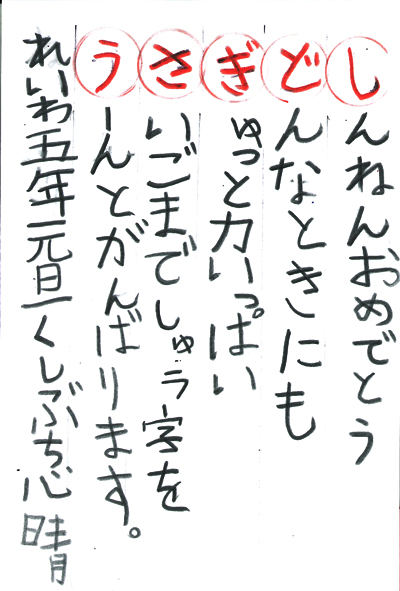 しんねんおめでとう
どんなときにも
ぎゅっと力いっぱい
さいごまでしゅう字を
うーんとがんばります。
れいわ五年元旦くしぶち心晴